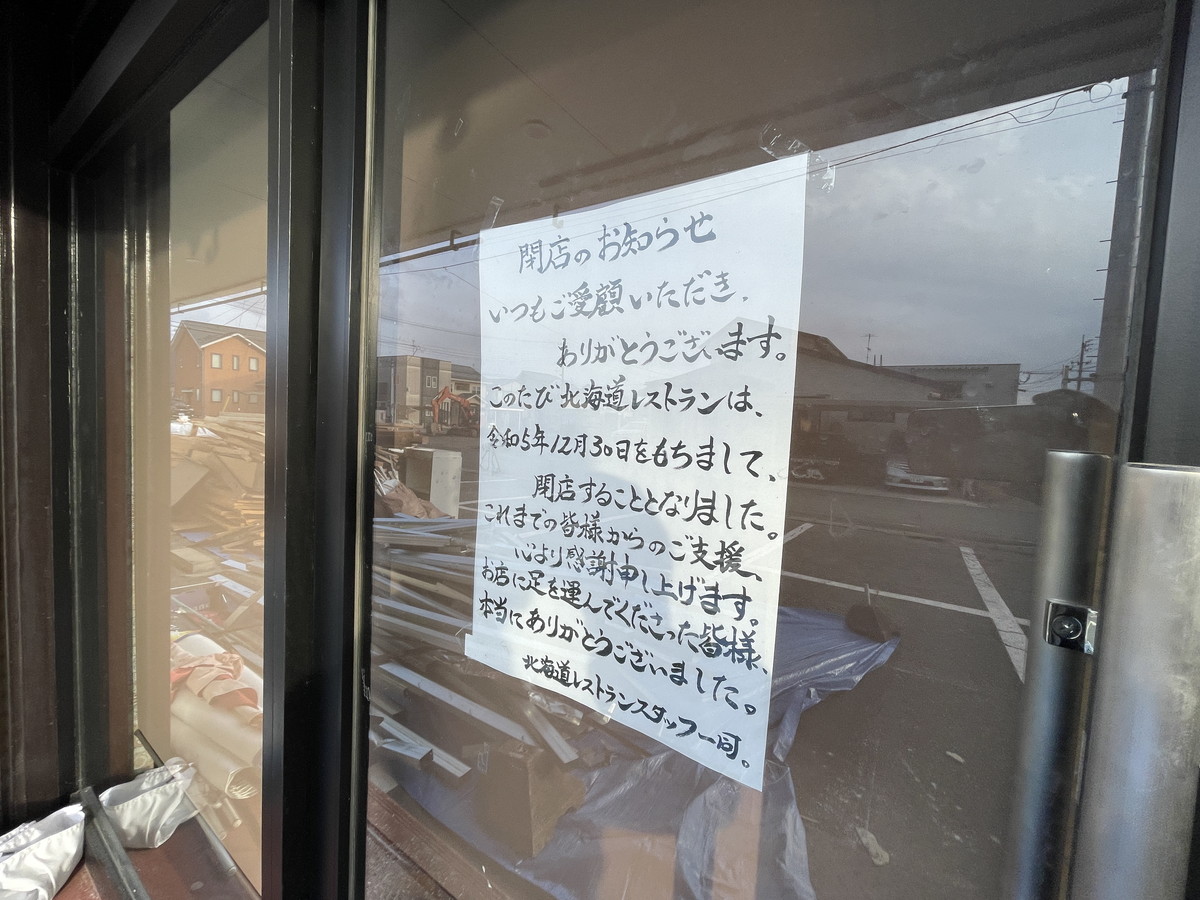 閉店のお知らせ
いつもご愛顧いただき、
ありがとうございます。
このたび北海道レストランは、
令和5年12月30日をもちまして、
閉店することとなりました。
これまでの皆様からのご支援、
心より感謝申し上げます。
お店に足を運んでくださった皆様、
本当にありがとうございました。
北海道レストランスタッフ一同。